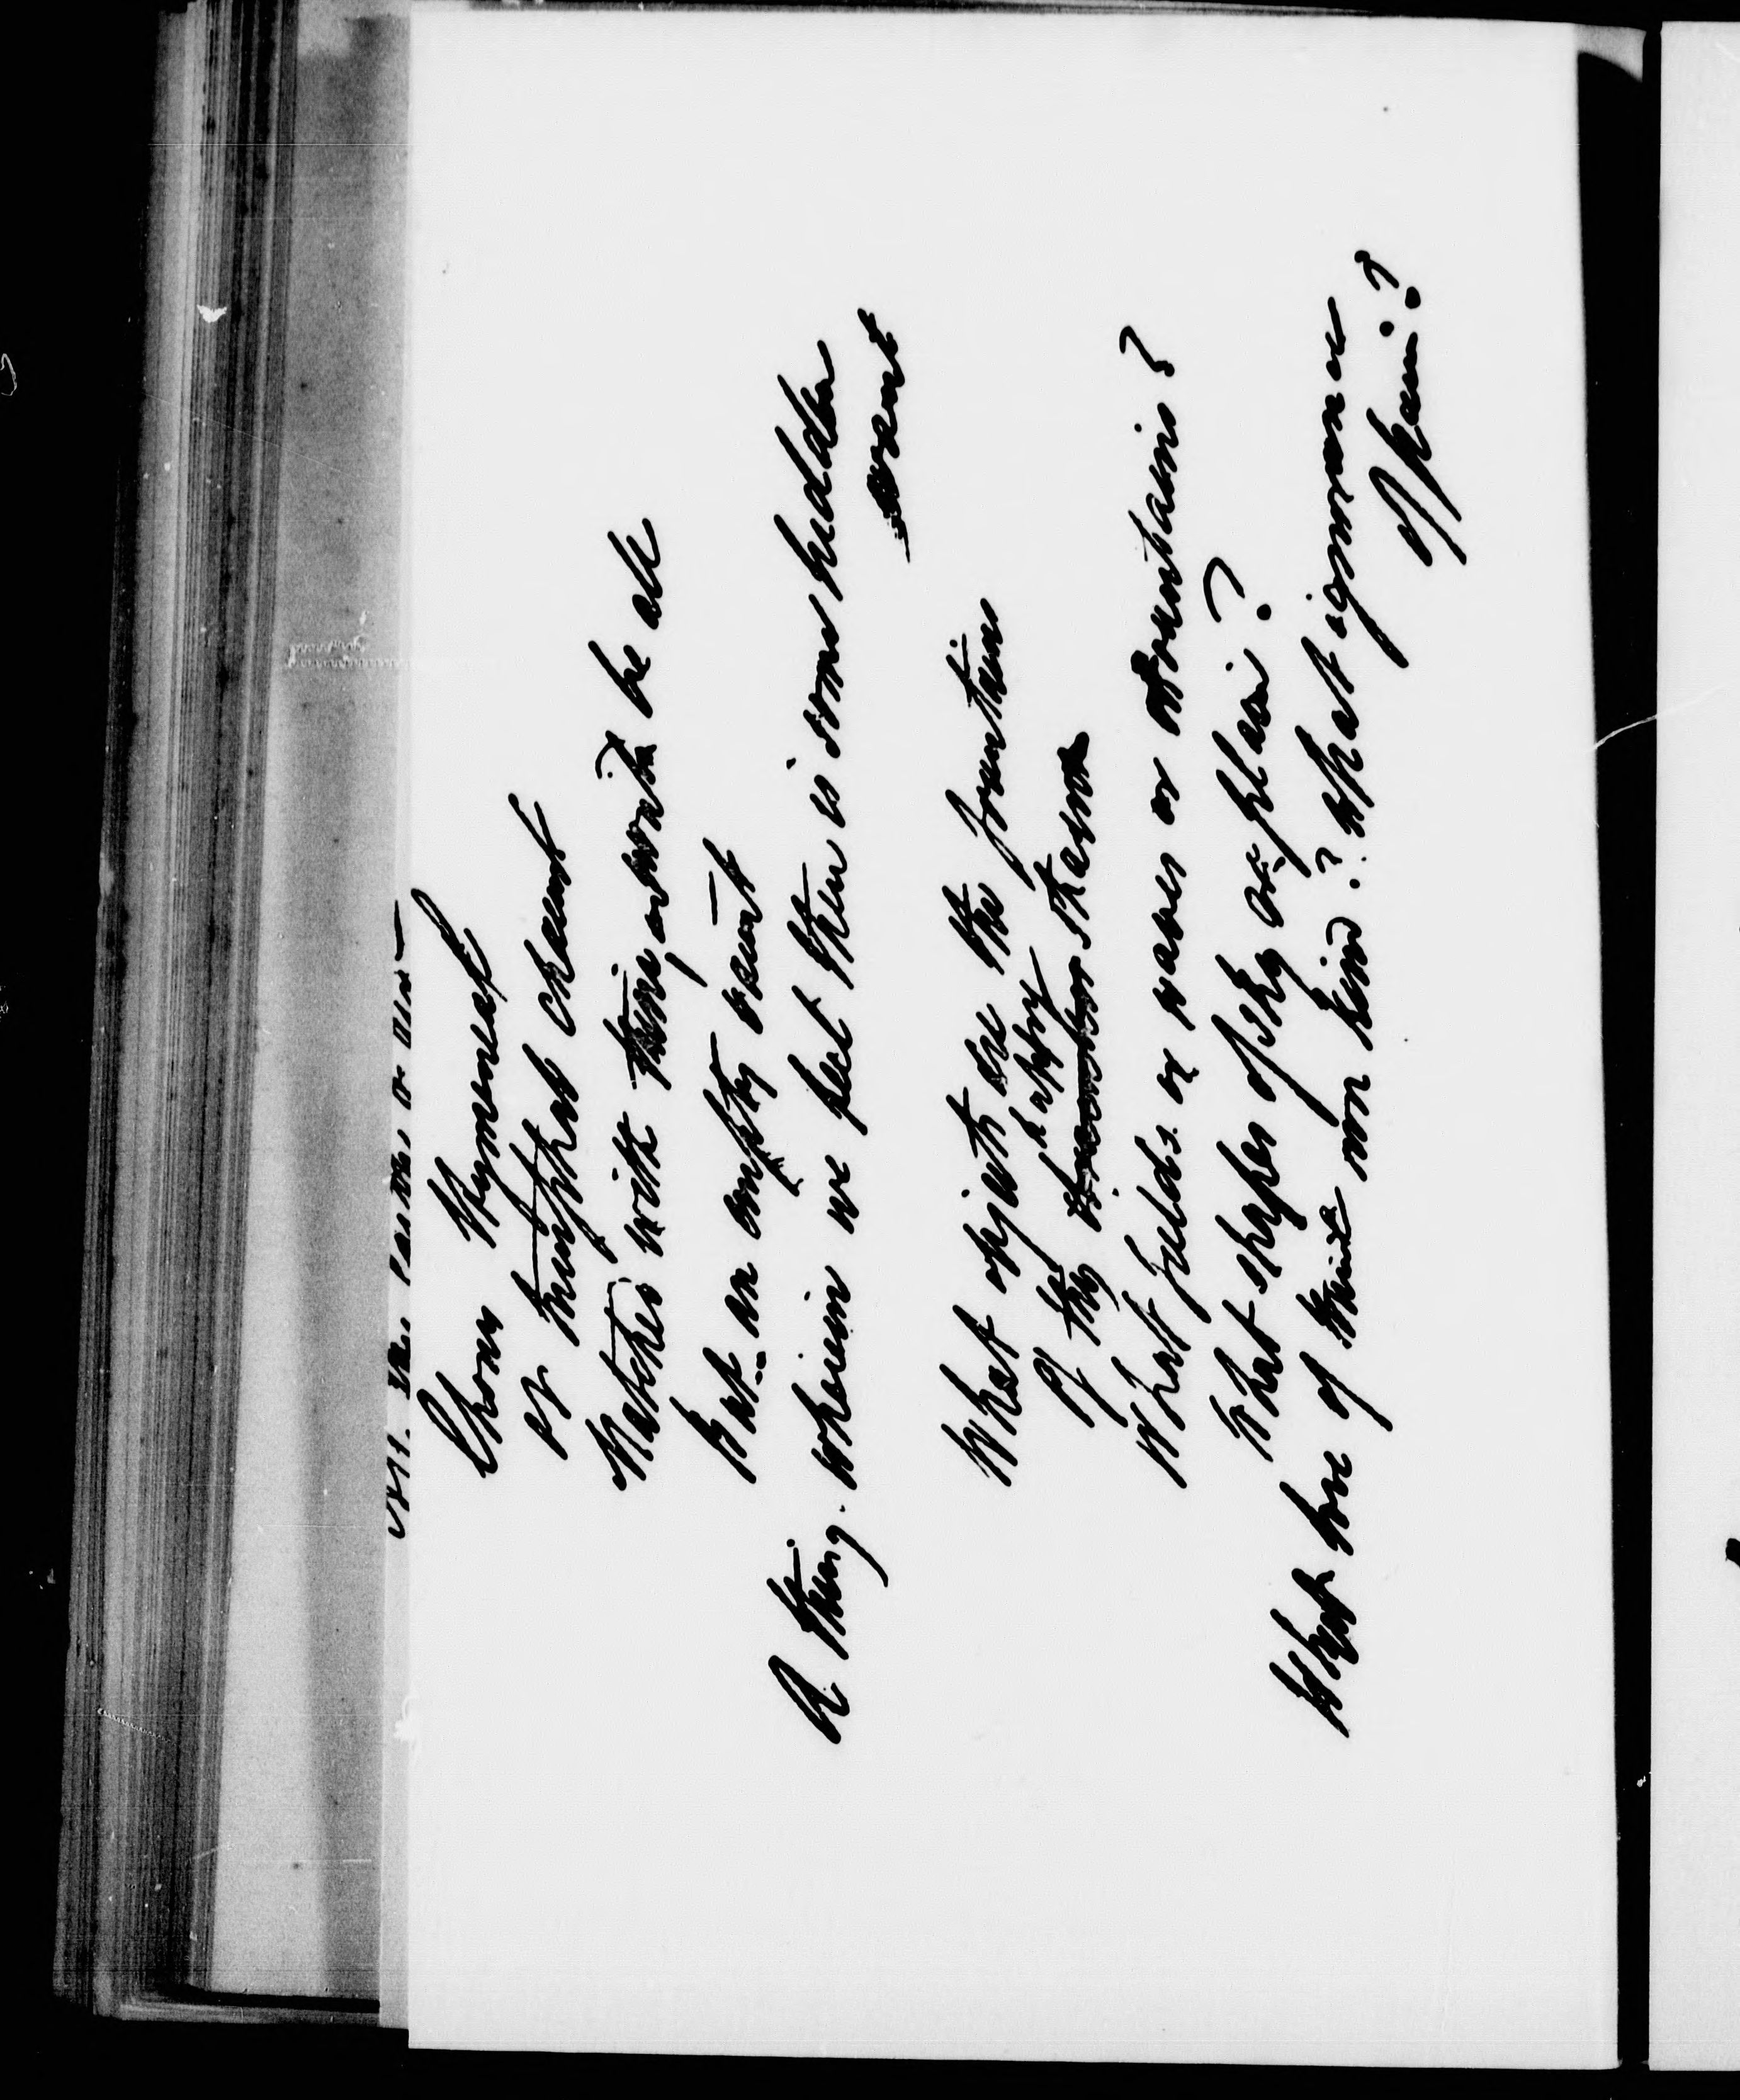 Chorus Hymeneal
or triumphal chaunt
Matched with thine, would be all
but an empty vaunt—
A thing. wherein we feel there is some hidden
want
What objects are the fountains
happy
Of thy strain
What fields. or waves or mountains?
What shapes of sky or plain?
What love of thine own kind? what ignorance
of pain?